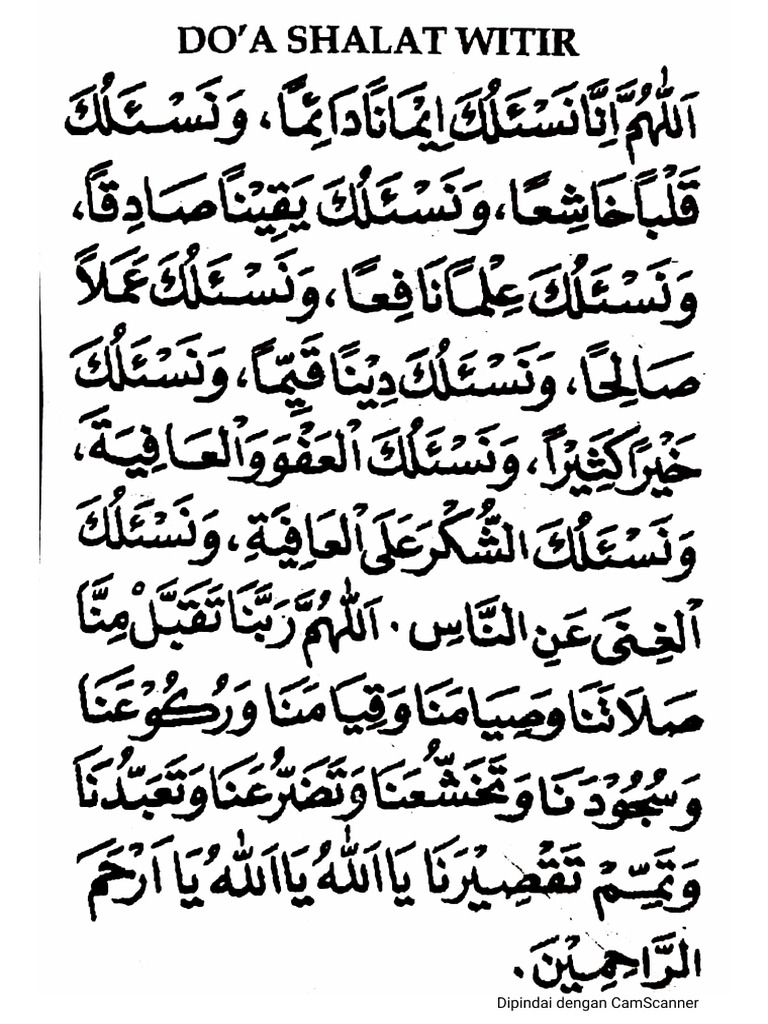 DO'A SHALAT WITIR
اَللّٰهُمَّ اِنَّا نَسْئَلُكَ اِيْمَانًا دَائِمًا، وَنَسْئَلُكَ
قَلْبًا خَاشِعًا، وَنَسْئَلُكَ يَقِيْنًا صَادِقًا،
وَنَسْئَلُكَ عِلْمًا نَافِعًا، وَنَسْئَلُكَ عَمَلاً
صَالِحًا، وَنَسْئَلُكَ دِيْنًا قَيِّمًا، وَنَسْئَلُكَ
خَيْرًا كَثِيْرًا، وَنَسْئَلُكَ الْعَفْوَ وَالْعَافِيَةَ،
وَنَسْئَلُكَ الشُّكْرَ عَلَى الْعَافِيَةِ، وَنَسْئَلُكَ
الْغِنَى عَنِ النَّاسِ. اَللّٰهُمَّ رَبَّنَا تَقَبَّلْ مِنَّا
صَلاَتَنَا وَصِيَامَنَا وَقِيَامَنَا وَرُكُوْعَنَا
وَسُجُوْدَنَا وَتَخَشُّعَنَا وَتَضَرُّعَنَا وَتَعَبُّدَنَا
وَتَمِّمْ تَقْصِيْرَنَا يَا اَللّٰهُ يَا اَللّٰهُ يَا اَرْحَمَ
الرَّاحِمِيْنَ.
Dipindai dengan CamScanner